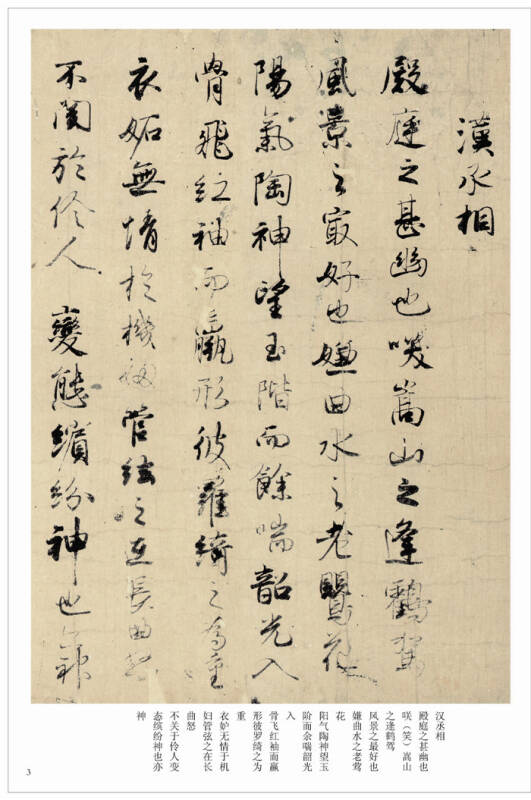 漢丞相
殿庭之甚幽也咲嵩山之逢鶴駕
風景之寂好也嫌曲水之老鸎花
陽氣陶神望玉階而餘喘韶光入
骨飛紅袖而羸形彼羅綺之為重
衣妬無情於機婦管絃之在長曲怒
不関於伶人 變態繽紛神也亦神
汉丞相
殿庭之甚幽也
咲（笑）嵩山
之逢鹤驾
风景之最好也
嫌曲水之老莺
花
阳气陶神望玉
阶而余喘韶光
入
骨飞红袖而赢
形彼罗绮之为
重
衣妒无情于机
妇管弦之在长
曲怒
不关于伶人变
态缤纷神也亦
神
3